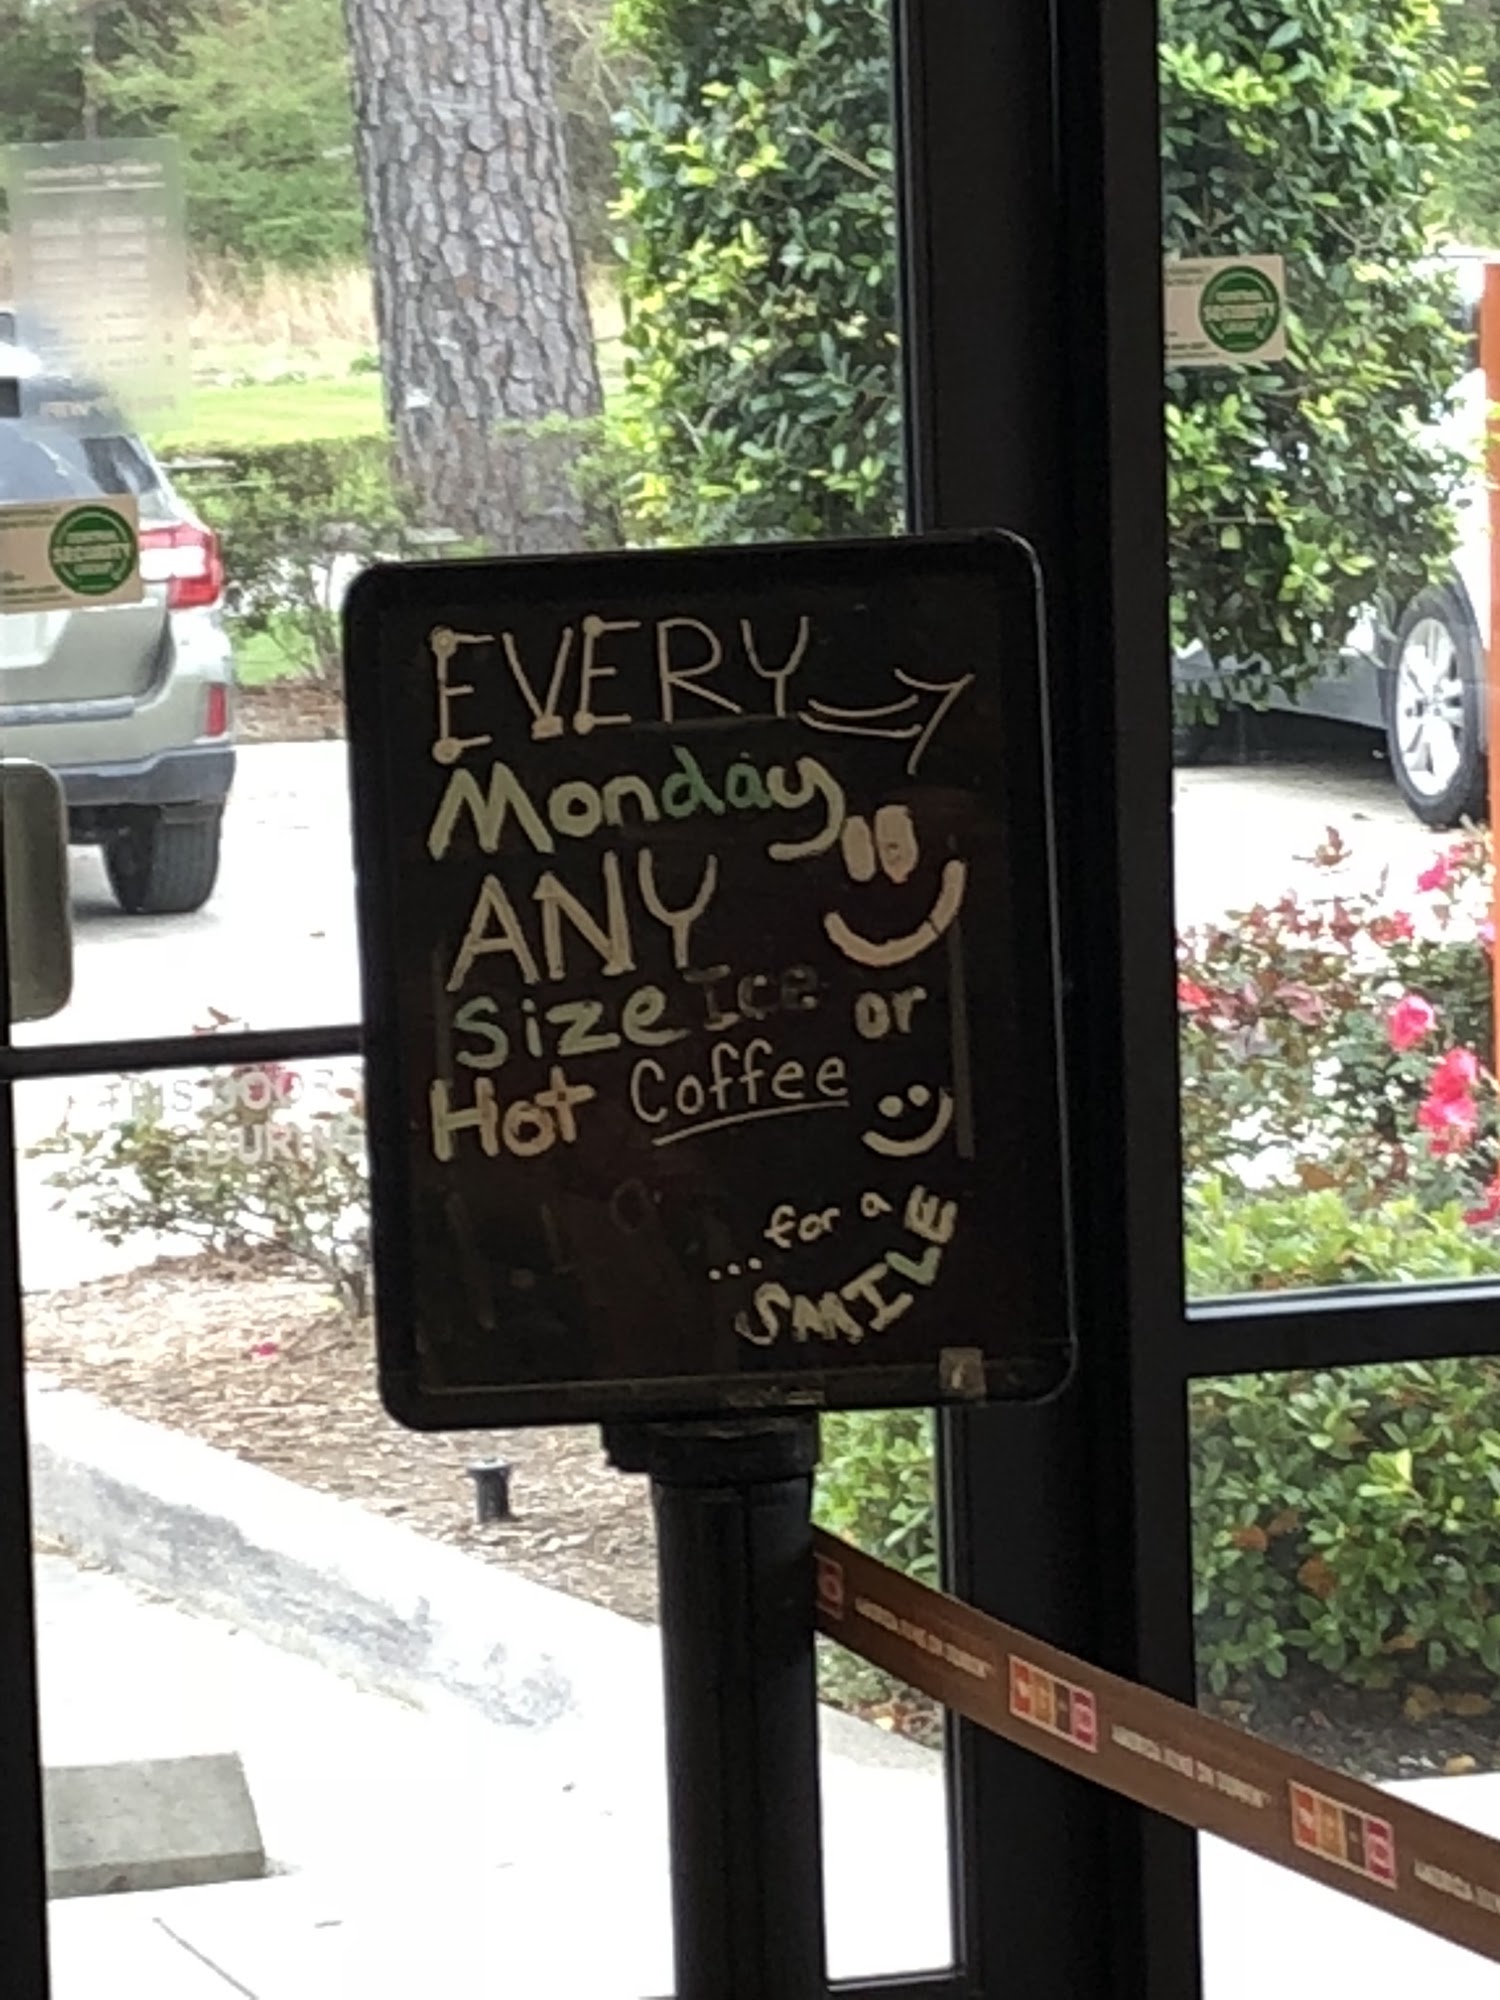 EVERY
Monday
ANY
Size Ice or
Hot Coffee
...for a
SMILE
SECURITY
SECURITY
THIS DOOR
DURIN
AMERICA RUNS ON DUNKIN'
AMERICA RUNS ON DUNKIN'
AMERICA RUN